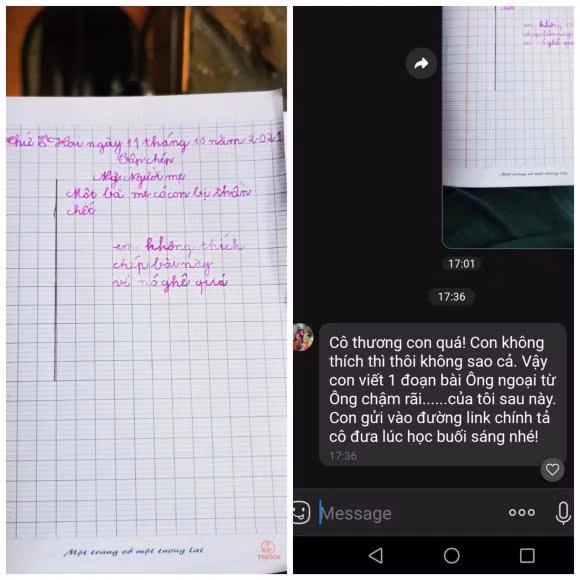 Thứ Hai ngày 11 tháng 10 năm 2021
Tập chép
Người mẹ
Một bà mẹ có con bị thần
chết
em không thích
chép bài này
vì nó ghê quá
Một trang vở một tương lai
em không thích
chép bài này
vì nó ghê quá
Một trang vở một tương lai
17:01
17:36
Cô thương con quá! Con không
thích thì thôi không sao cả. Vậy
con viết 1 đoạn bài Ông ngoại từ
Ông chậm rãi......của tôi sau này.
Con gửi vào đường link chính tả
cô đưa lúc học buổi sáng nhé!
17:36
Message